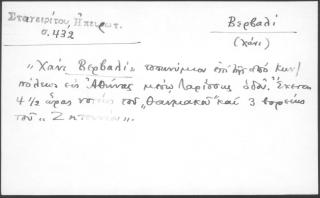 Σταγειρίτου, Ηπειρωτ.
σ. 432
Βερβαλί
(χάνι)
„Χάνι Βερβαλί" τοπωνύμιον επί της από Κων/
πόλεως εις Αθήνας μέσω Λαρίσσης οδού. Έκειτο
4 ½ ώρας νοτίως του „Θαυμακού" και 3 βορείως
του „Ζητουνίου".